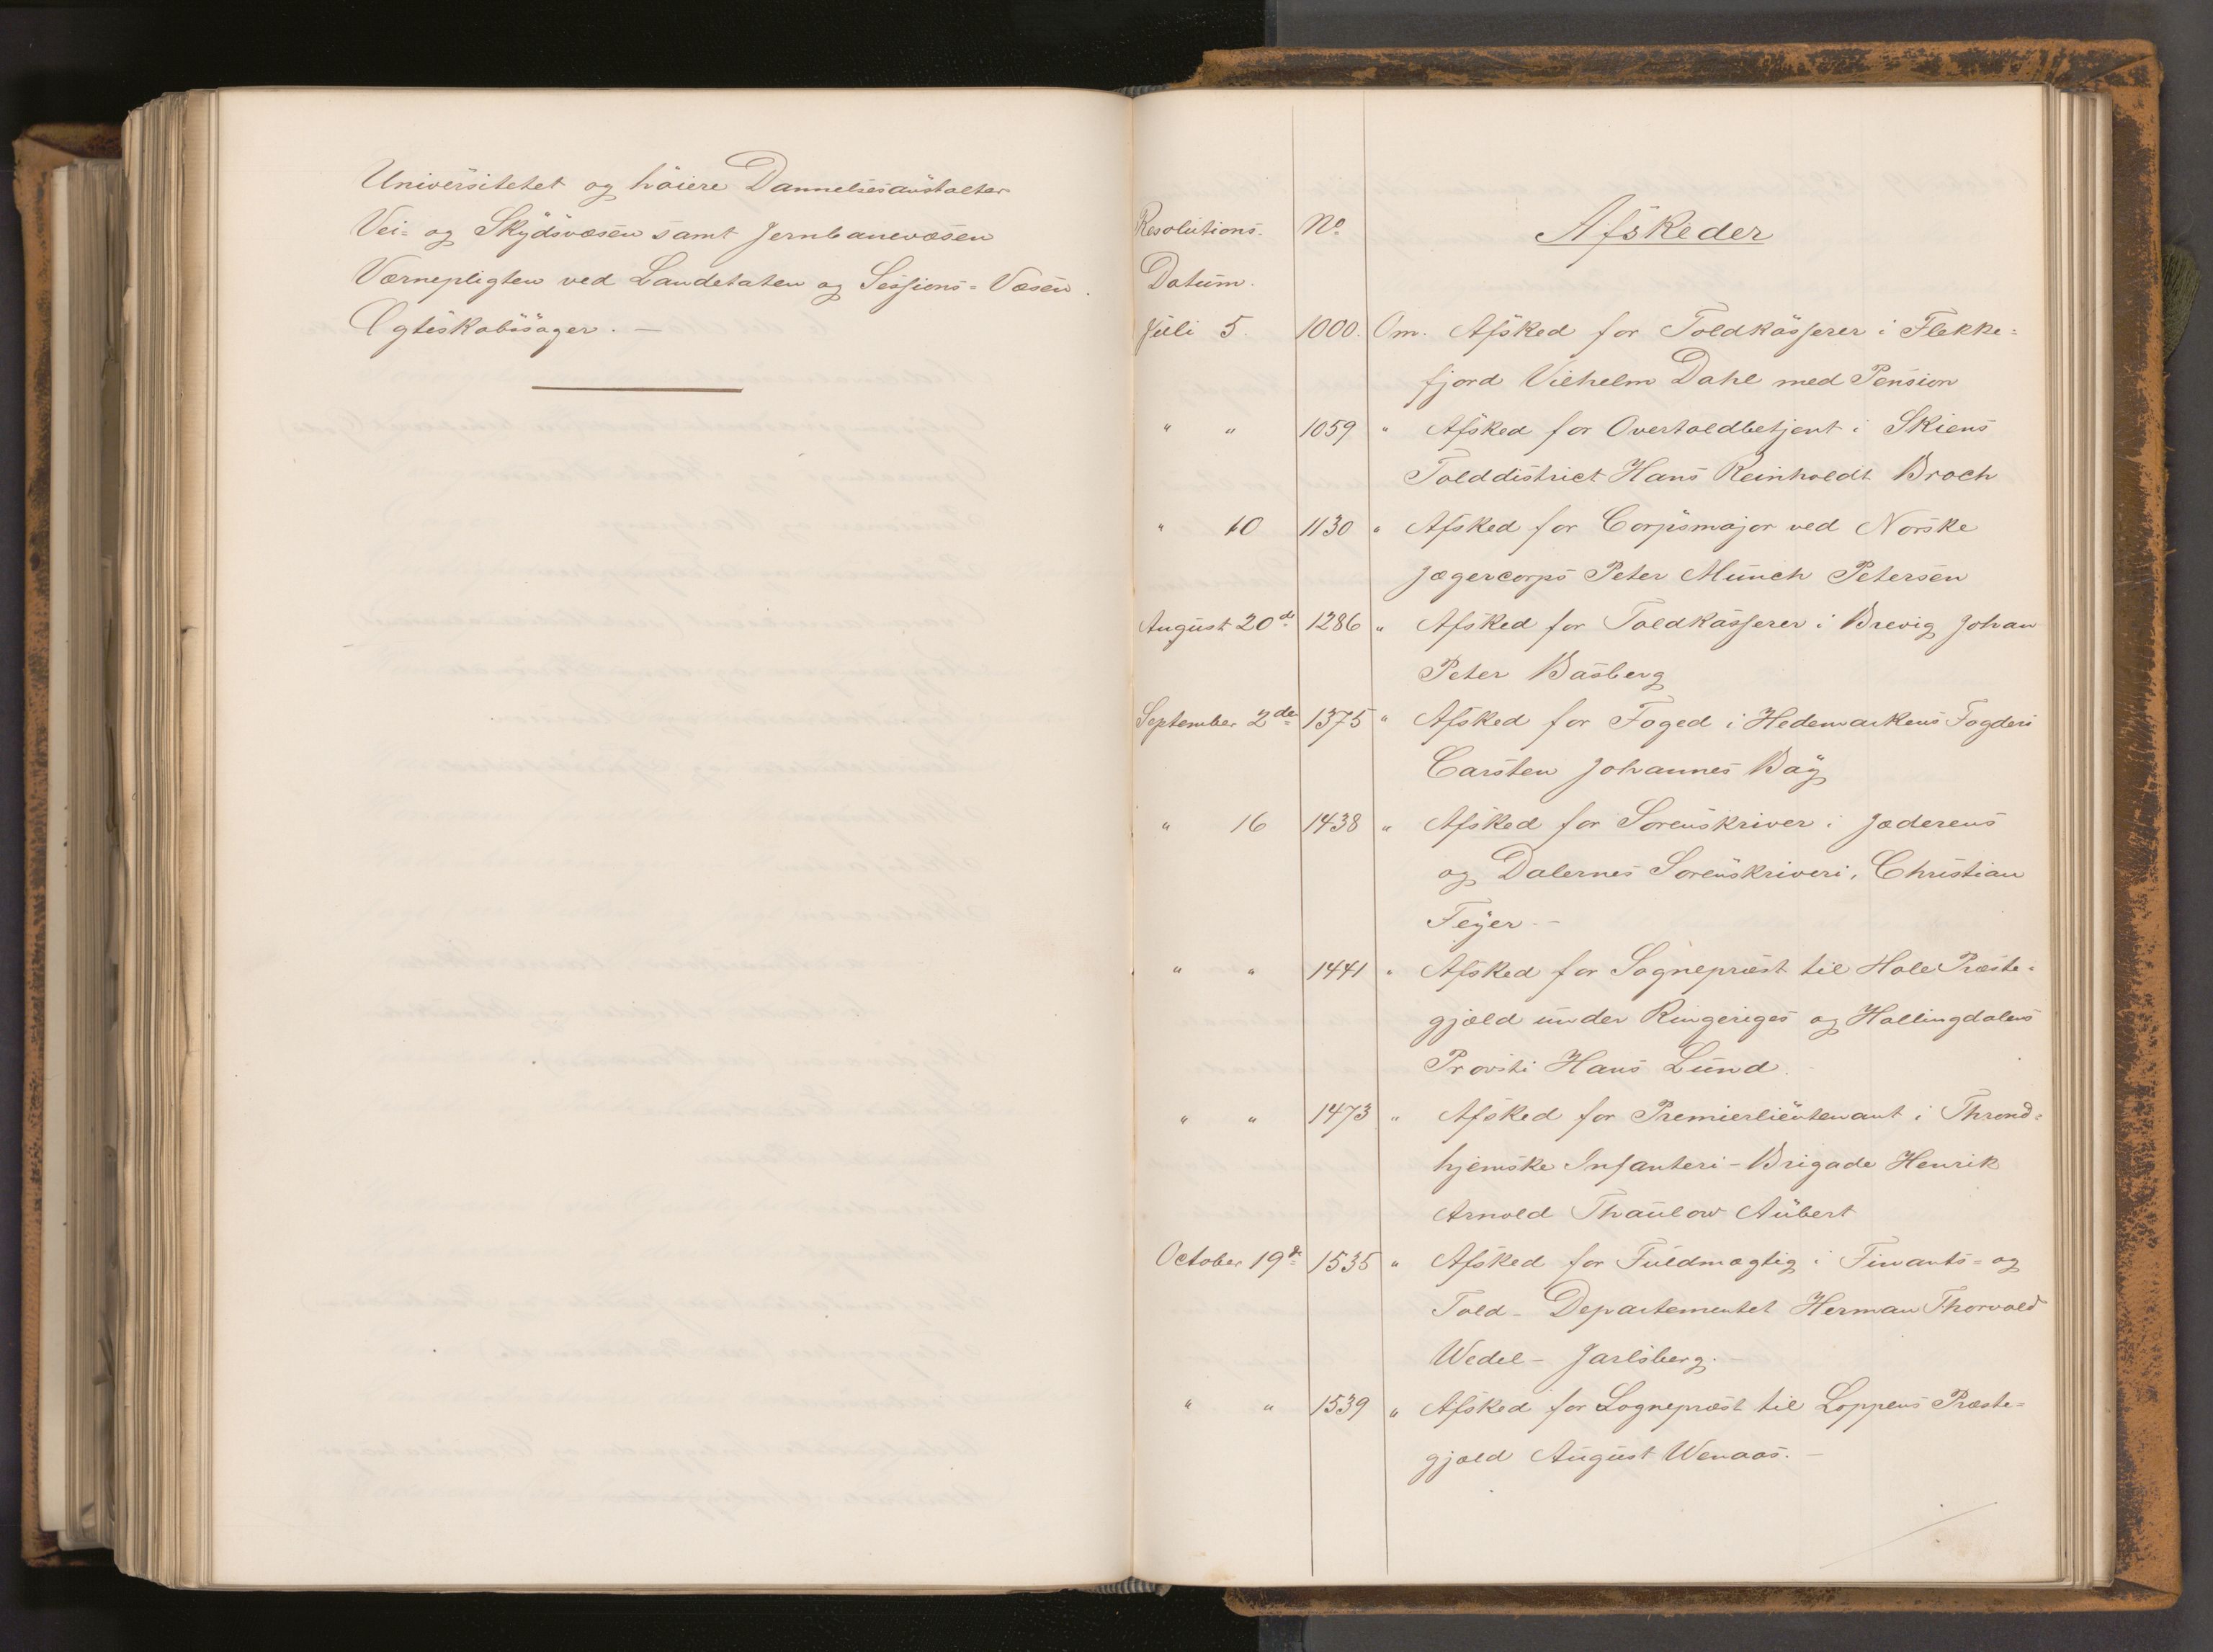 Universitetet og høiere Dannelsesanstalter
Vei- og Skydsvæsen samt Jernbanevæsen
Værnepligten ved Landetaten og Sessions-Væsen.
Ægteskabssager. —
Resolutions- No Afskeder
Datum.
Juli 5. 1000. Om. Afsked for Toldkasserer i Flekke-
fjord Vilhelm Dahl med Pension
" " 1059 " Afsked for Overtoldbetjent i Skiens
Tolddistrict Hans Reinholdt Broch
" 10 1130 " Afsked for Corpsmajor ved Norske
Jægercorps Peter Munch Petersen
August 20de 1286 " Afsked for Toldkasserer i Brevig Johan
Peter Basberg
September 2den 1375 " Afsked for Foged i Hedemarkens Fogderi
Carsten Johannes Bay
" 16 1438 " Afsked for Sorenskriver i Jæderens
og Dalernes Sorenskriveri, Christian
Feyer. —
" " 1441 " Afsked for Sognepræst til Hole Præste-
gjæld under Ringeriges og Hallingdalens
Provsti Hans Lund.
" " 1473 " Afsked for Premierlieutenant i Thrond-
hjemske Infanteri-Brigade Henrik
Arnold Thaulow Aubert
October 19de 1535 " Afsked for Fuldmægtig i Finants- og
Told-Departementet Herman Thorvald
Wedel-Jarlsberg. —
" " 1539 " Afsked for Sognepræst til Loppens Præste-
gjæld August Wenaas. —